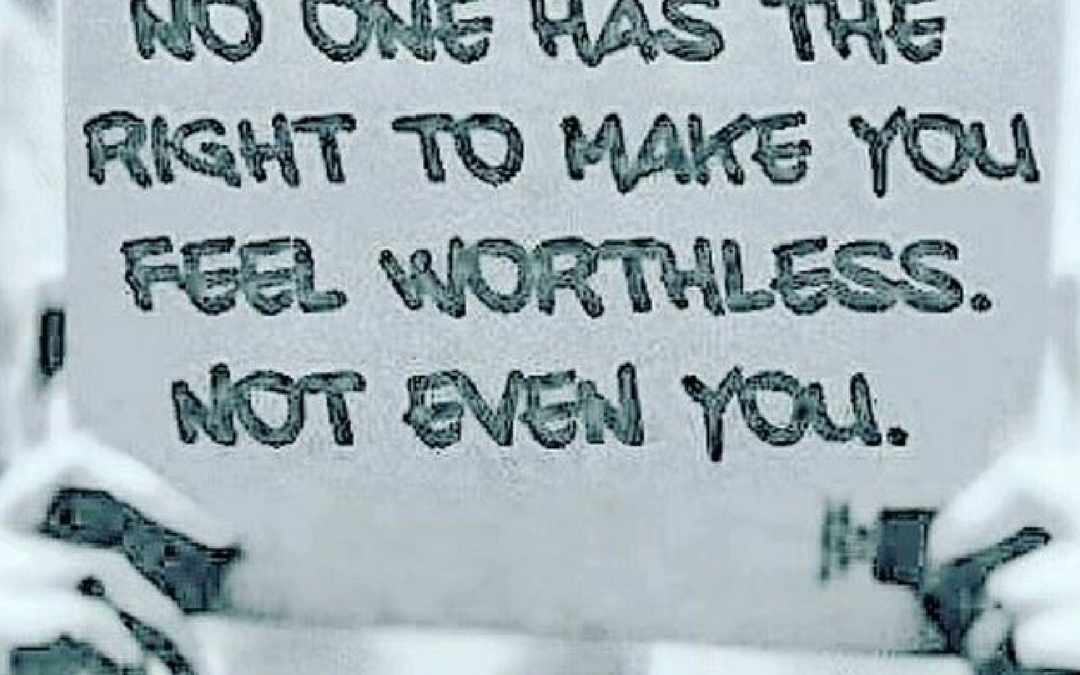 NO ONE HAS THE
RIGHT TO MAKE YOU
FEEL WORTHLESS.
NOT EVEN YOU.